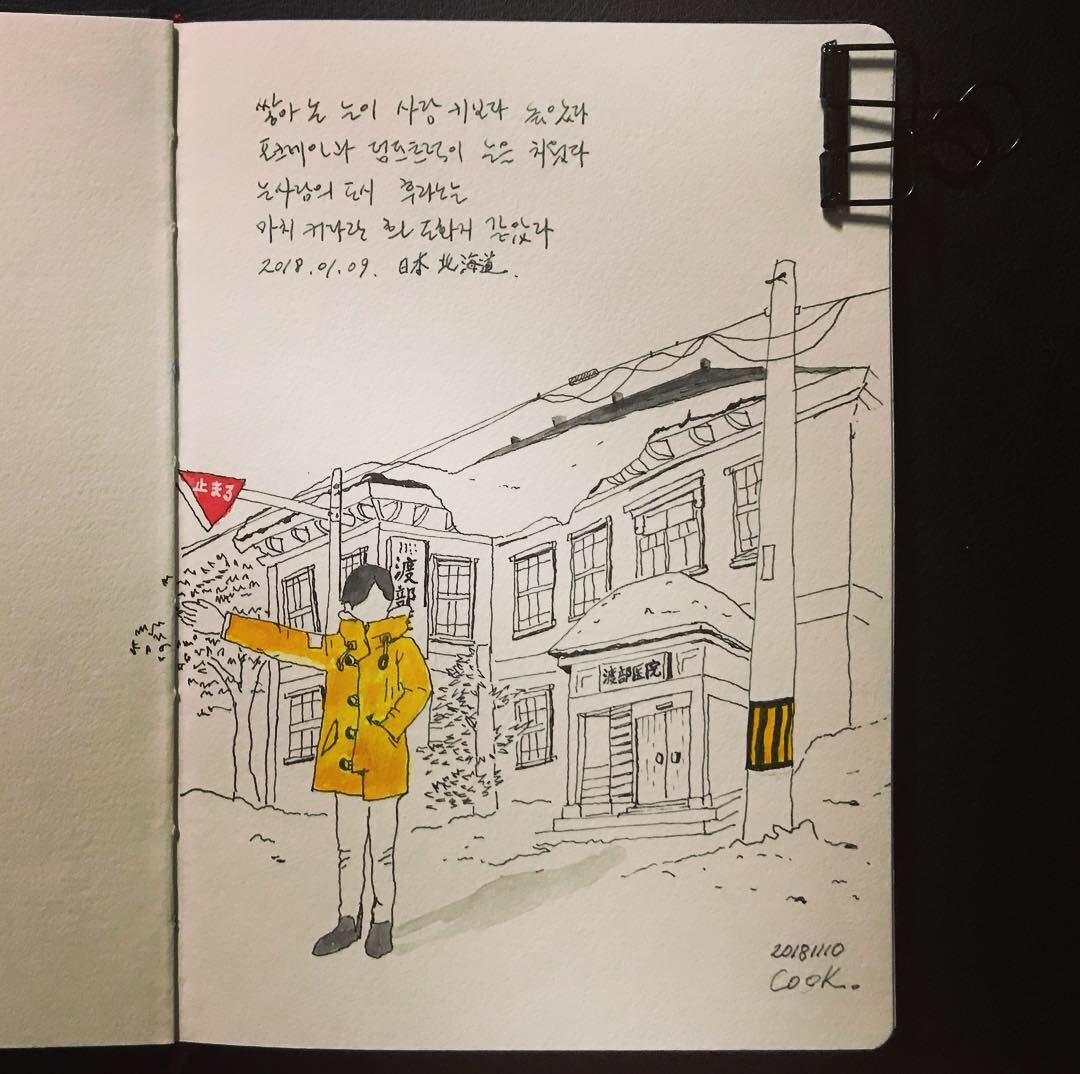 쌓아 논 눈이 사람 키보다 높았다
포크레인과 덤프트럭이 눈을 치웠다
눈사람의 도시 후라노는
마치 커다란 흰 도화지 같았다
2018.01.09. 日本 北海道.
止まる
渡部
渡部医院
20181110
Cook.